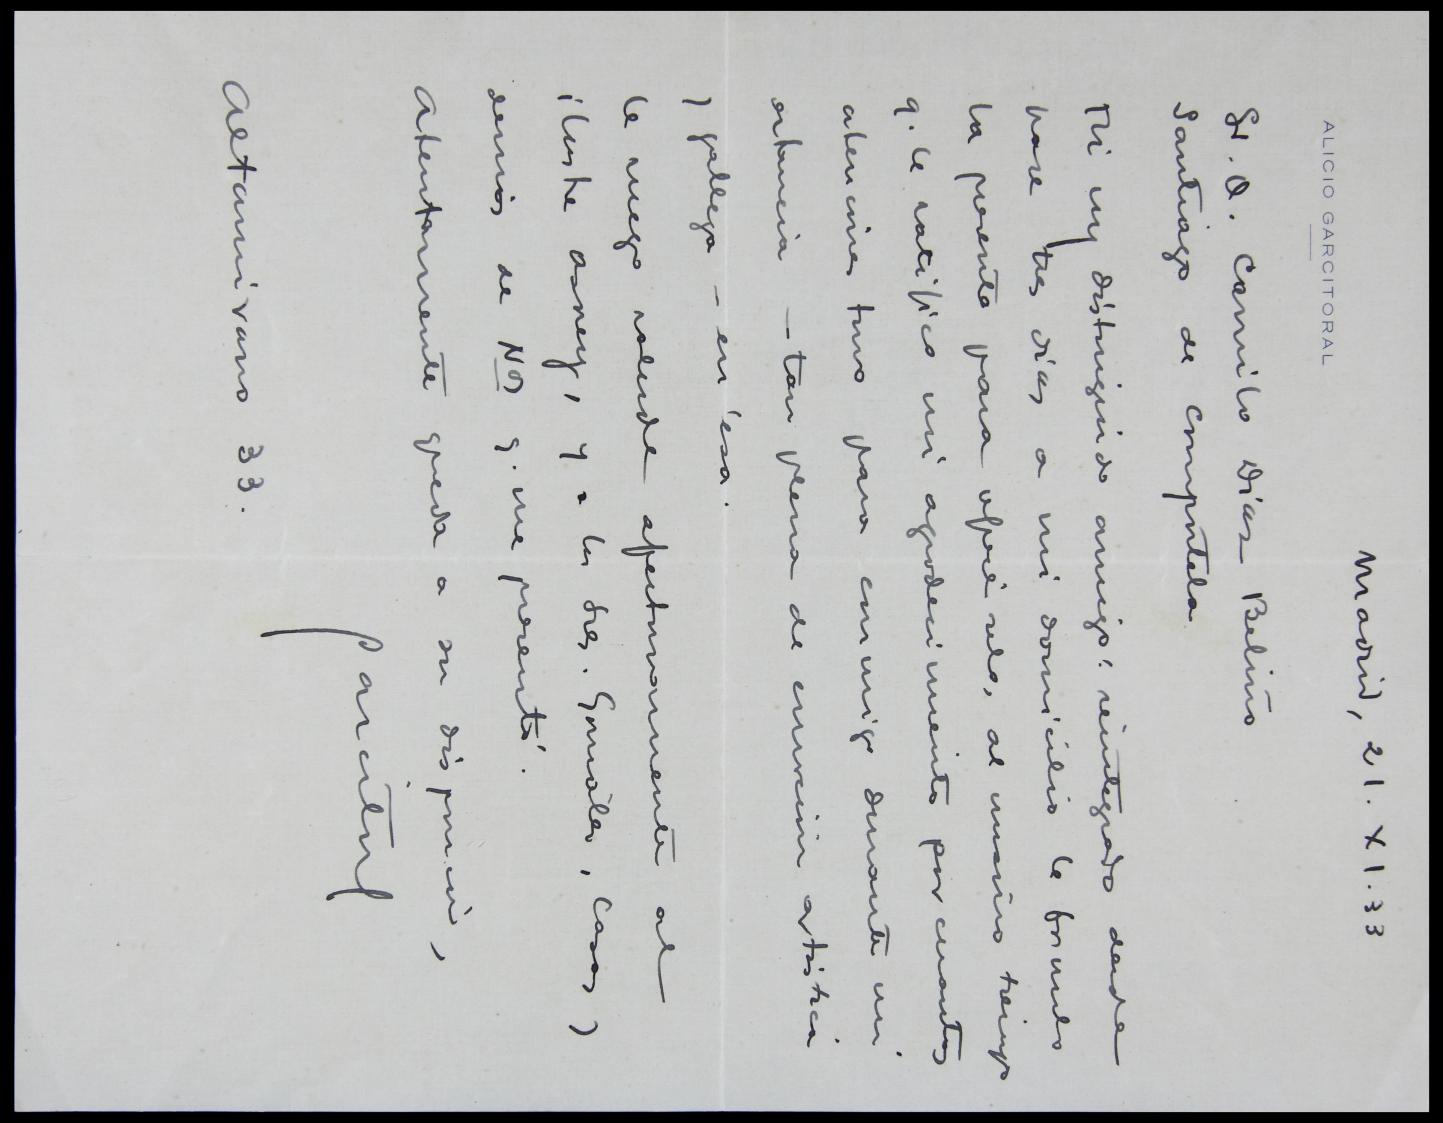 ALICIO GARCITORAL
Madrid, 21.XI.33
Sr. D. Camilo Díaz Baliño
Santiago de Compostela
Mi muy distinguido amigo: reintegrado desde
hace tres días a mi domicilio le formulo
la presente para ofrecérselo, al mismo tiempo
q. le ratifico mi agradecimiento por cuantas
atenciones tuvo para conmigo durante mi
estancia — tan plena de emoción artística
y gallega — en ésa.
Le ruego salude afectuosamente al
ilustre Asorey, y a los Sres. González, Casas y
demás de NOS q. me presentó.
Atentamente queda a su disposición,
Garcitoral
Altamirano 33.